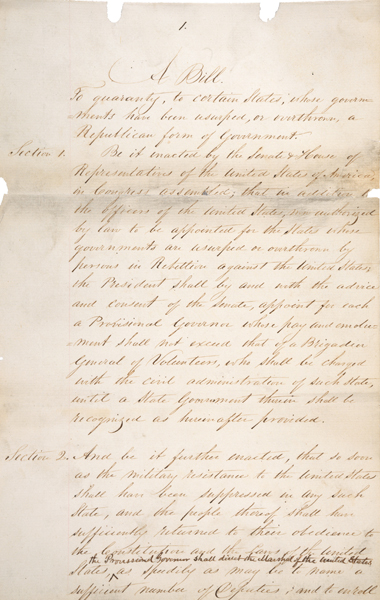 1.
A Bill.
To guaranty, to certain States, whose govern-
ments have been usurped, or overthrown, a
Republican form of Government.
Section 1. Be it enacted by the Senate & House of
Representatives of the United States of America,
in Congress assembled; that in addition to
the officers of the United States, now authorized
by law to be appointed for the States whose
governments are usurped or overthrown by
persons in Rebellion against the United States,
the President shall by and with the advice
and consent of the Senate, appoint for each
a Provisional Governor whose pay and emolu-
ment shall not exceed that of a Brigadier
General of Volunteers, who shall be charged
with the civil administration of such State,
until a State Government therein shall be
recognized as hereinafter provided.
Section 2. And be it further enacted, that so soon
as the military resistance to the United States
shall have been suppressed in any such
State, and the people thereof shall have
sufficiently returned to their obedience to
the Constitution and the laws of the United
the Provisional Governor shall direct the Marshal of the United States
States, ^ as speedily as may be to name a
sufficient number of Deputies; and to enroll